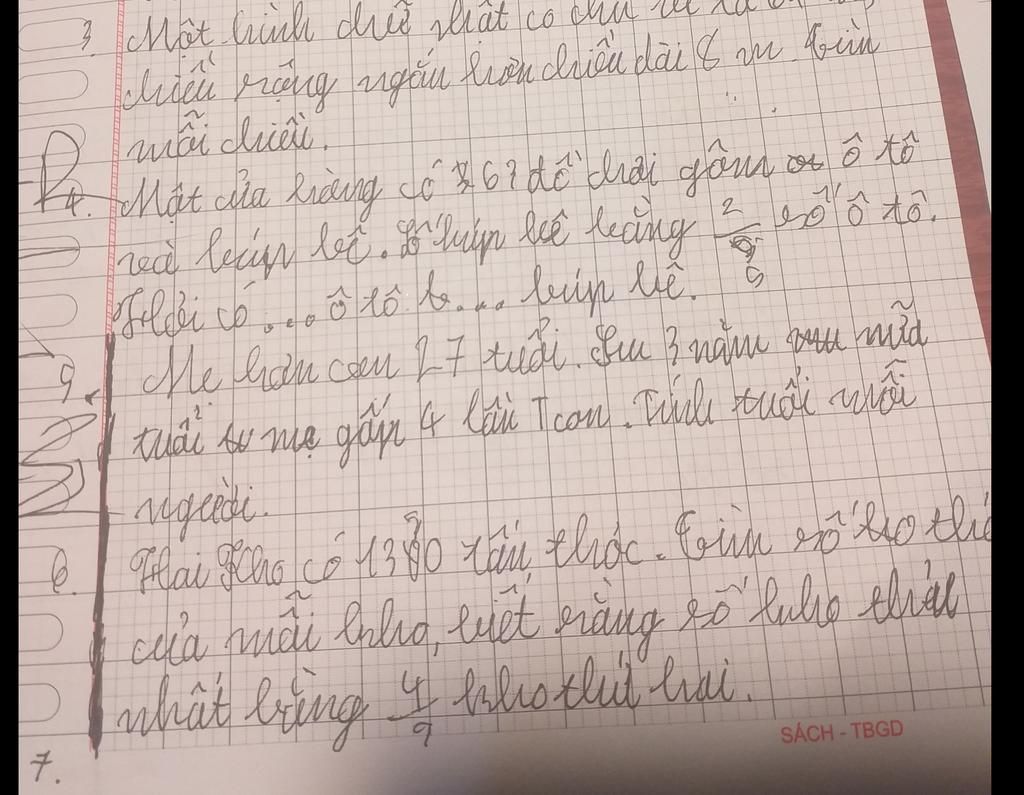 3. Một hình chữ nhật có chu vi
chiều rộng ngắn hơn chiều dài 8 m. Tìm
mỗi chiều.
4. Một cửa hàng có 63 đồ chơi gồm ô tô
và búp bê. Số búp bê bằng 2/5 số ô tô.
Hỏi có ... ô tô b.... búp bê.
5. Mẹ hơn con 27 tuổi. Sau 3 năm nữa
tuổi mẹ gấp 4 lần T con. Tính tuổi mỗi
người.
6. Hai kho có tấn thóc. Tìm số thó
của mỗi kho, biết rằng số kho thứ
nhất bằng 4/9 kho thứ hai.
SÁCH - TBGD
7.